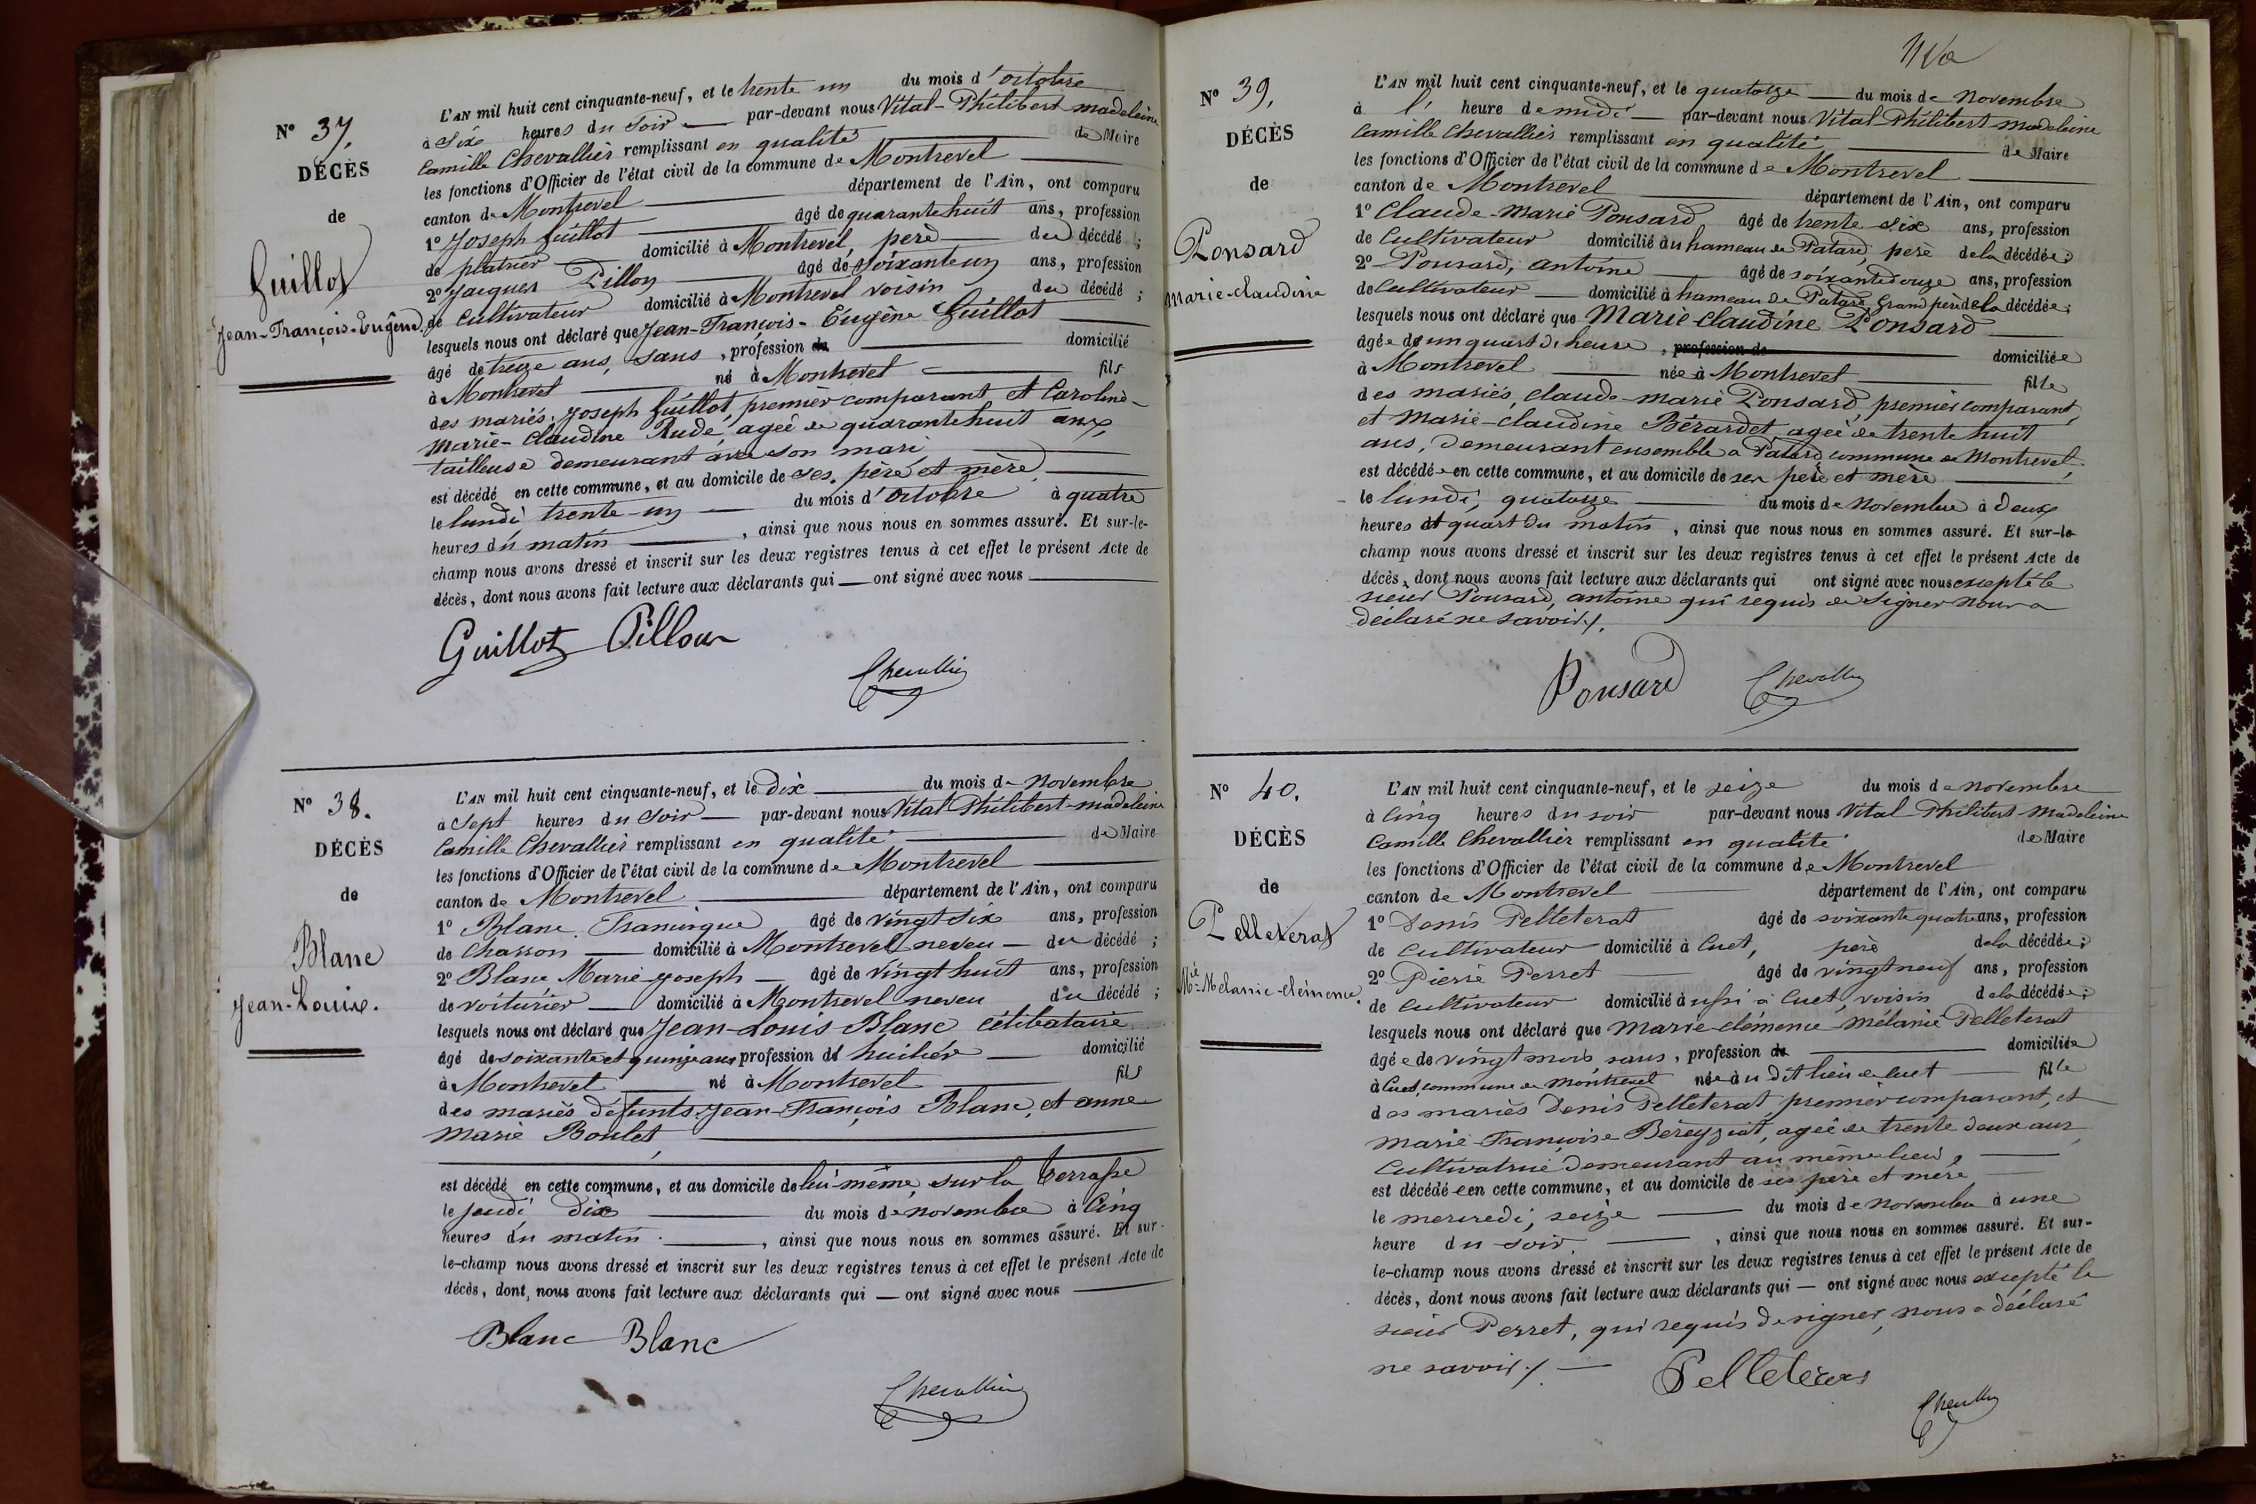 N° 37.
DÉCÈS
de
Guillot
Jean-François-Eugène.
L'AN mil huit cent cinquante-neuf, et le trente un du mois d'octobre
à Six heures du soir par-devant nous Vital-Philibert madeleine
Camille Chevallier remplissant en qualité de Maire
les fonctions d'Officier de l'état civil de la commune de Montrevel
canton de Montrevel département de l'Ain, ont comparu
1° Joseph Guillot âgé de quarante huit ans, profession
de platrier domicilié à Montrevel, père du décédé ;
2° Jacques Pillon âgé de soixante un ans, profession
de Cultivateur domicilié à Montrevel voisin du décédé ;
lesquels nous ont déclaré que Jean-François-Eugène Guillot
âgé de treize ans, sans, profession de domicilié
à Montrevel né à Montrevel fils
des mariés Joseph Guillot, premier comparant et Caroline-
Marie-Claudine Rude, agée de quarante huit ans,
tailleuse demeurant avec son mari
est décédé en cette commune, et au domicile de ses père et mère
le lundi trente-un du mois d'octobre à quatre
heures du matin, ainsi que nous nous en sommes assuré. Et sur-le-
champ nous avons dressé et inscrit sur les deux registres tenus à cet effet le présent Acte de
décès, dont nous avons fait lecture aux déclarants qui ont signé avec nous
Guillot Pillon
Chevallier
N° 38.
DÉCÈS
de
Blanc
Jean-Louis.
L'AN mil huit cent cinquante-neuf, et le dix du mois de novembre
à Sept heures du soir par-devant nous Vital Philibert-madeleine
Camille Chevallier remplissant en qualité de Maire
les fonctions d'Officier de l'état civil de la commune de Montrevel
canton de Montrevel département de l'Ain, ont comparu
1° Blanc, âgé de vingt six ans, profession
de Charron domicilié à Montrevel neveu du décédé ;
2° Blanc Marie-Joseph âgé de vingt huit ans, profession
de voiturier domicilié à Montrevel neveu du décédé ;
lesquels nous ont déclaré que Jean-Louis Blanc célibataire
âgé de soixante et quinze ans profession de huilier domicilié
à Montrevel né à Montrevel fils
des mariés défunts Jean-François Blanc, et anne
Marie Boulet,
est décédé en cette commune, et au domicile de lui-même, sur la Terrasse
le jeudi dix du mois de novembre à Cinq
heures du matin, ainsi que nous nous en sommes assuré. Et sur-
le-champ nous avons dressé et inscrit sur les deux registres tenus à cet effet le présent Acte de
décès, dont nous avons fait lecture aux déclarants qui ont signé avec nous
Blanc Blanc
Chevallier
N° 39.
DÉCÈS
de
Ponsard
Marie-Claudine
L'AN mil huit cent cinquante-neuf, et le quatorze du mois de novembre
à l' heure de midi par-devant nous Vital-Philibert-madeleine
Camille Chevallier remplissant en qualité de Maire
les fonctions d'Officier de l'état civil de la commune de Montrevel
canton de Montrevel département de l'Ain, ont comparu
1° Claude-Marie Ponsard âgé de trente six ans, profession
de Cultivateur domicilié au hameau de Patard, père de la décédée ;
2° Ponsard, antoine âgé de soixante douze ans, profession
de Cultivateur domicilié à hameau de Patard Grand père de la décédée ;
lesquels nous ont déclaré que Marie Claudine Ponsard
âgée de un quart d'heure, profession de domiciliée
à Montrevel née à Montrevel fille
des mariés, claude-marie Ponsard, premier comparant,
et Marie-claudine Bérardet, agée de trente huit
ans, demeurant ensemble a Patard commune de Montrevel,
est décédée en cette commune, et au domicile de ses père et mère
le lundi, quatorze du mois de novembre à deux
heures et quart du matin, ainsi que nous nous en sommes assuré. Et sur-le-
champ nous avons dressé et inscrit sur les deux registres tenus à cet effet le présent Acte de
décès, dont nous avons fait lecture aux déclarants qui ont signé avec nous excepté le
sieur Ponsard, antoine qui requis de signer nous a
déclaré ne savoir./.
Ponsard
Chevallier
N° 40.
DÉCÈS
de
Pelleterat
Mie-Mélanie-clémence.
L'AN mil huit cent cinquante-neuf, et le seize du mois de novembre
à Cinq heures du soir par-devant nous Vital Philibert-Madeleine
Camille Chevallier remplissant en qualité de Maire
les fonctions d'Officier de l'état civil de la commune de Montrevel
canton de Montrevel département de l'Ain, ont comparu
1° Denis Pelleterat âgé de soixante quatre ans, profession
de Cultivateur domicilié à Cuet, père de la décédée ;
2° Pierre Perret âgé de vingt neuf ans, profession
de Cultivateur domicilié aussi à Cuet, voisin de la décédée ;
lesquels nous ont déclaré que Marie-clémence mélanie Pelleterat
âgée de vingt mois sans, profession de domiciliée
à Cuet, commune de Montrevel née au dit lieu de Cuet fille
des mariés Denis Pelleterat, premier comparant, et
Marie-Françoise Béreyziat, agée de trente deux ans
Cultivatrice demeurant au même lieu,
est décédée en cette commune, et au domicile de ses père et mère
le mercredi, seize du mois de novembre à une
heure du soir, ainsi que nous nous en sommes assuré. Et sur-
le-champ nous avons dressé et inscrit sur les deux registres tenus à cet effet le présent Acte de
décès, dont nous avons fait lecture aux déclarants qui — ont signé avec nous excepté le
sieur Perret, qui requis de signer, nous a déclaré
ne savoir./.
Chevallier